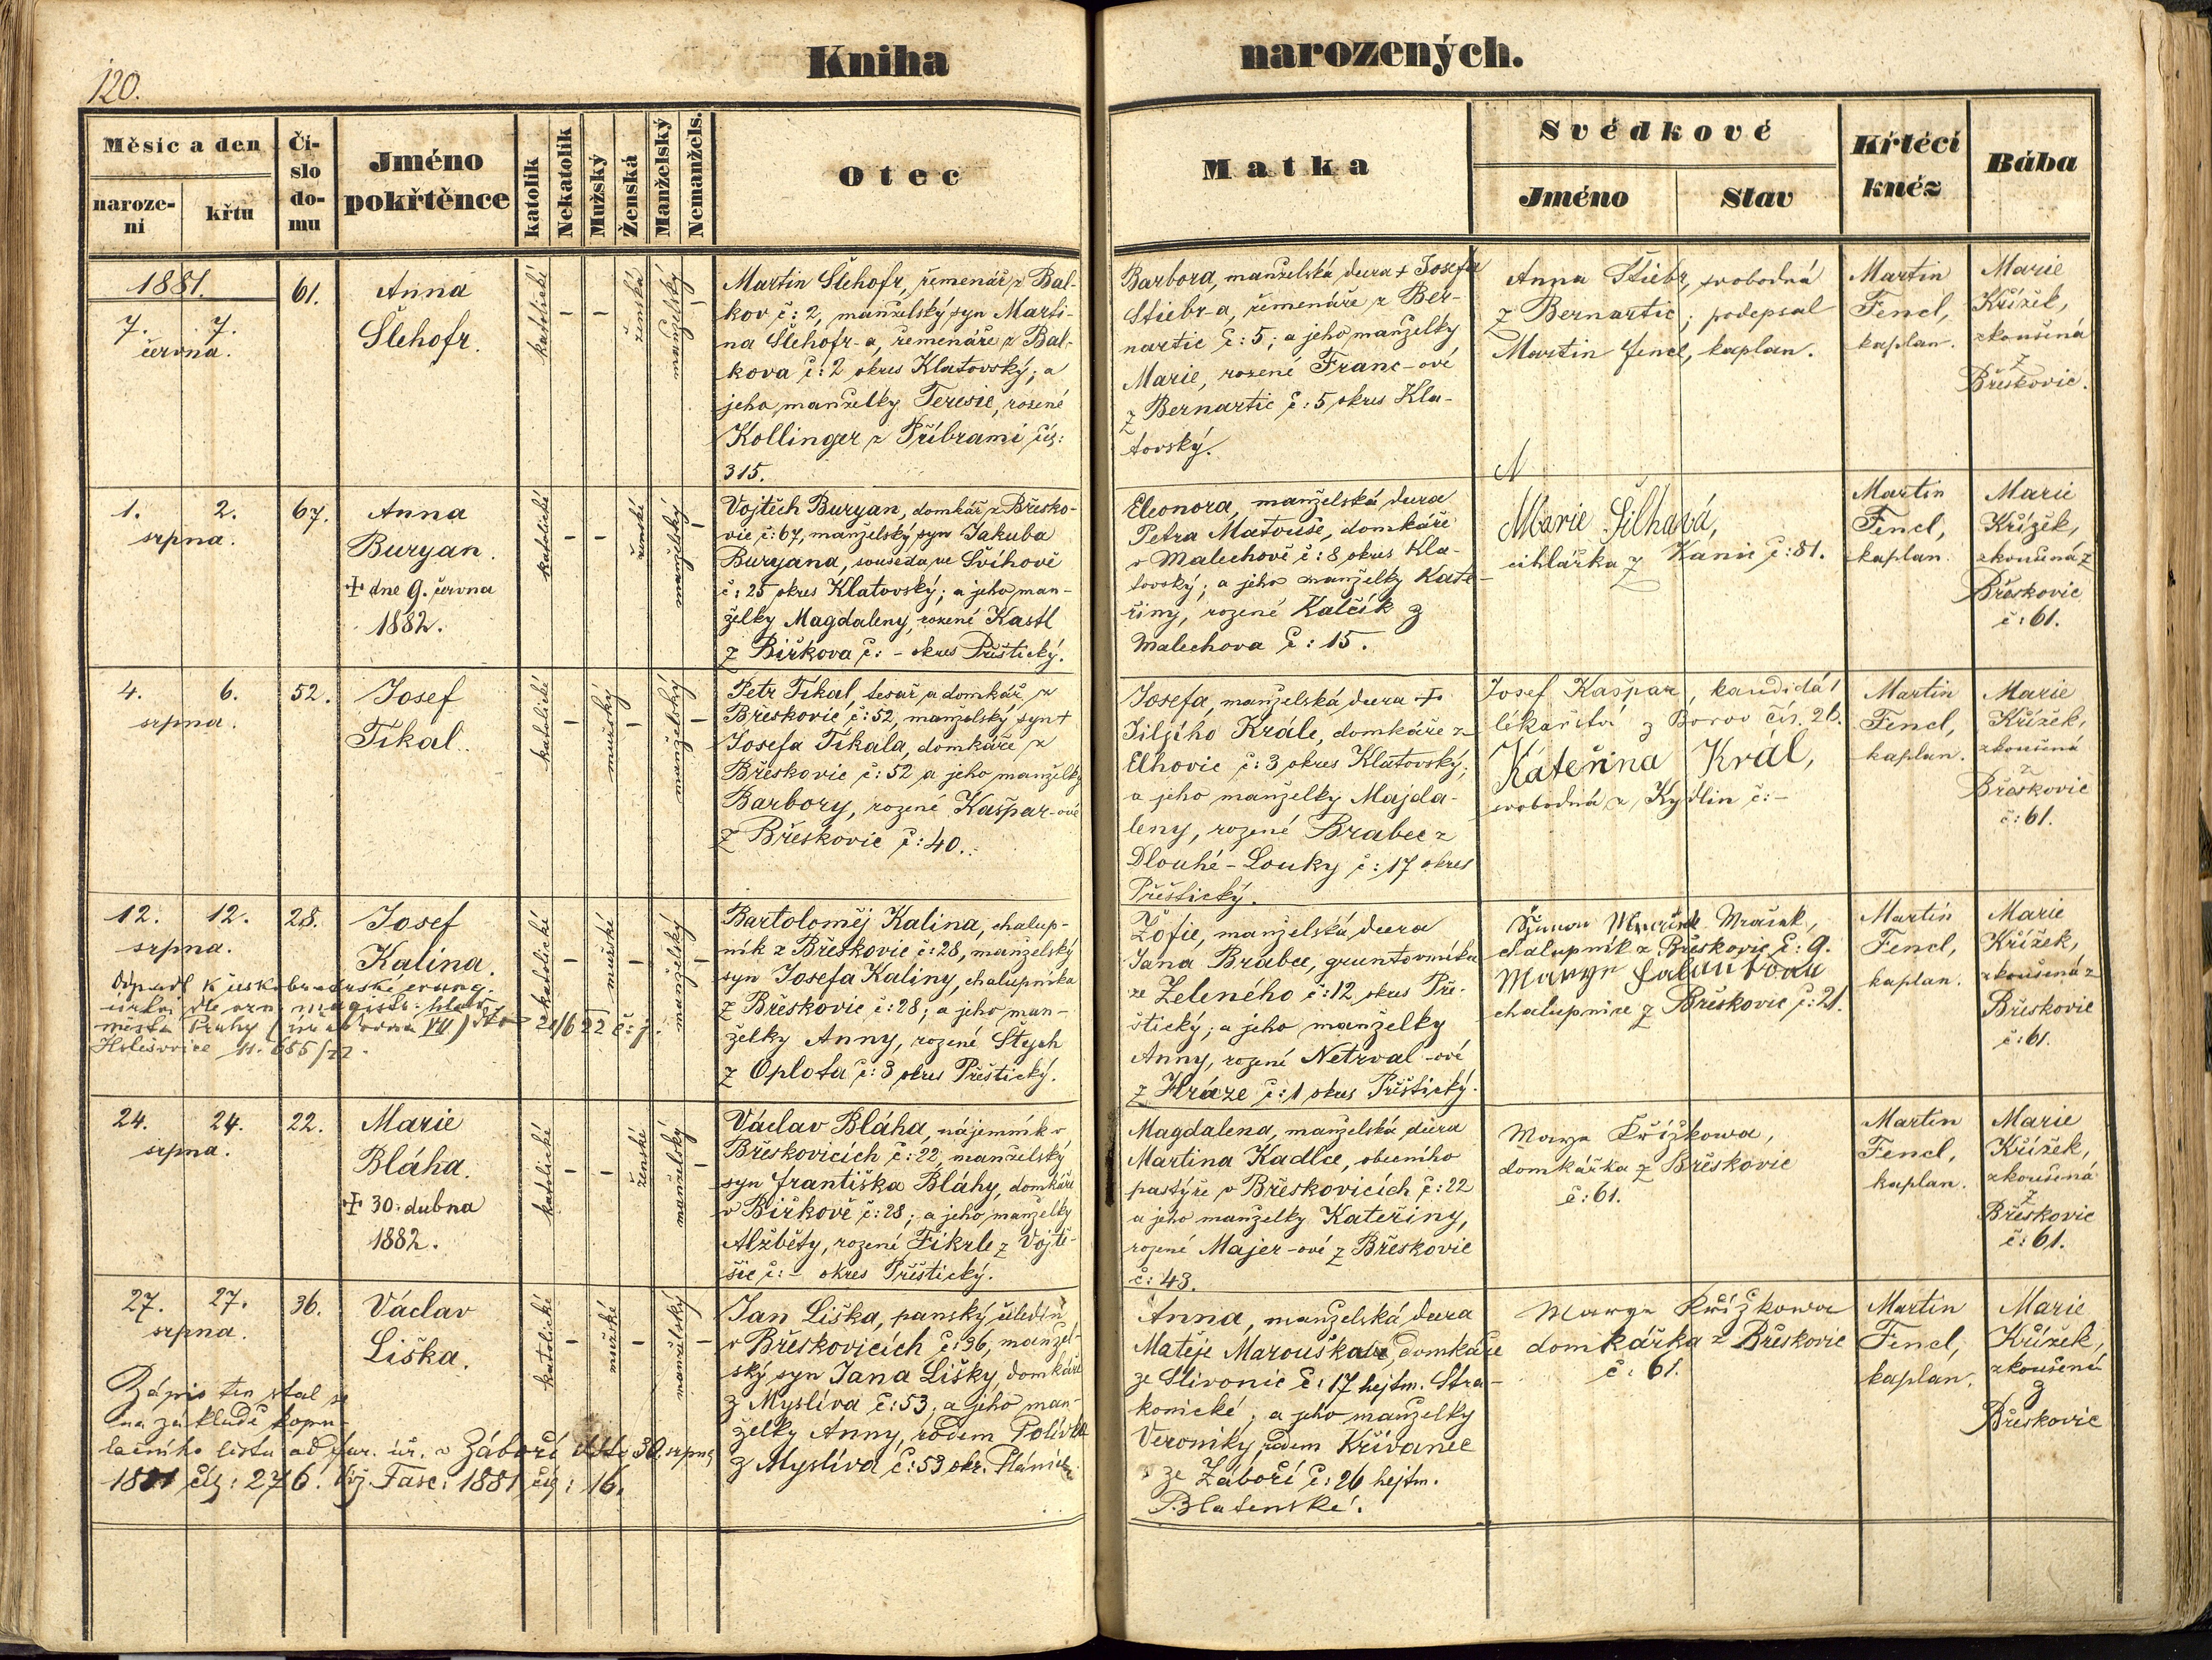 120.
Kniha narozených.
Měsíc a den
naroze-
ní
křtu
Čí-
slo
do-
mu
Jméno
pokřtěnce
katolík
Nekatolík
Mužský
Ženská
Manželský
Nemanžels.
Otec
Matka
Svědkové
Jméno
Stav
Křtécí
knéz
Bába
1881.
7. 7.
června.
61.
Anna
Šlehofr.
katolické
–
–
ženská
manželský
–
Martin Šlehofr, řemenář z Bal-
kov č: 2, manželský syn Marti-
na Šlehofr-a, řemenáře z Bal-
kova č: 2 okres Klatovský; a
jeho manželky Teresie, rozené
Kollinger z Příbrami čís:
315.
Barbora, manželská dcera + Josefa
Stiebr-a, řemenáře z Ber-
nartic č: 5; a jeho manželky
Marie, rozené Franc-ové
z Bernartic č: 5 okres Kla-
tovský.
Anna Stiebr, svobodná
z Bernartic; podepsal
Martin Fencl, kaplan.
Martin
Fencl,
kaplan.
Marie
Křížek,
zkoušená
z
Břeskovic.
1. 2.
srpna.
67.
Anna
Buryan.
+ dne 9. června
1882.
katolické
–
–
ženské
manželský
–
Vojtěch Buryan, domkář z Břesko-
vic č: 67, manželský syn Jakuba
Buryana, souseda ve Švihově
č: 25 okres Klatovský; a jeho man-
želky Magdaleny, rozené Kastl
z Biřkova č: – okres Přeštický.
Eleonora, manželská dcera
Petra Matouše, domkáře
v Malechově č: 8 okres Kla-
tovský; a jeho manželky Kate-
řiny, rozené Kalčík z
Malechova č: 15.
Marie Šilhavá,
cihlářka z Kanic č: 81.
Martin
Fencl,
kaplan.
Marie
Křížek,
zkoušená z
Břeskovic
č: 61.
4. 6.
srpna.
52.
Josef
Tikal.
katolické
–
mužský
–
manželský
–
Petr Tikal, tesař a domkář z
Břeskovic č: 52, manželský syn +
Josefa Tikala, domkáře z
Břeskovic č: 52 a jeho manželky
Barbory, rozené Kašpar-ové
z Břeskovic č: 40.
Josefa, manželská dcera +
Jiljího Krále, domkáře z
Elhovic č: 3 okres Klatovský;
a jeho manželky Majda-
leny, rozené Brabec z
Dlouhé-Louky č: 17 okres
Přeštický.
Josef Kašpar, kandidát
lékařství z Borov čís. 26.
Kateřina Král,
svobodná z Kydlin č: –
Martin
Fencl,
kaplan.
Marie
Křížek,
zkoušená
z
Břeskovic
č: 61.
12. 12.
srpna.
28.
Josef
Kalina.
katolické
–
mužské
–
manželský
–
Odpadl k českobratrské evang.
církvi dle ozn. magistr. hlav.
města Prahy (úřadovna VII) dto 21/6 22 č: j.
Holešovice 11.655/22.
Bartoloměj Kalina, chalup-
ník z Břeskovic č: 28, manželský
syn Josefa Kaliny, chalupníka
z Břeskovic č: 28; a jeho man-
želky Anny, rozené Štych
z Oplota č: 3 okres Přeštický.
Žofie, manželská dcera
Jana Brabce, gruntovníka
ze Zeleného č: 12 okres Pře-
štický; a jeho manželky
Anny, rozené Netrval-ové
z Hráze č: 1 okres Přeštický.
Šimon Mraček,
chalupník z Břeskovic č: 9.
Marye
chalupnice z Břeskovic č: 21.
Martin
Fencl,
kaplan.
Marie
Křížek,
zkoušená z
Břeskovic
č: 61.
24. 24.
srpna.
22.
Marie
Bláha.
+ 30. dubna
1882.
katolické
–
–
ženské
manželský
–
Václav Bláha, nájemník v
Břeskovicích č: 22, manželský
syn Františka Bláhy, domkáře
v Biřkově č: 28; a jeho manželky
Alžběty, rozené Fikrle z Vojtě-
šic č: – okres Přeštický.
Magdalena, manželská dcera
Martina Kadlce, obecního
pastýře v Břeskovicích č: 22
a jeho manželky Kateřiny,
rozené Majer-ové z Břeskovic
č: 43.
Marya Křížkowa,
domkářka z Břeskovic
č: 61.
Martin
Fencl,
kaplan.
Marie
Křížek,
zkoušená
z
Břeskovic
č: 61.
27. 27.
srpna.
36.
Václav
Liška.
katolické
–
mužské
–
manželský
–
Zápis ten stal se
na základě kopu-
lačního listu od far. úř. v Záboří ddto 30. srpna
1881 čís: 276. Viz Fasc: 1881 čís: 16.
Jan Liška, panský čeledín
v Břeskovicích č: 36, manžel-
ský syn Jana Lišky, domkáře
z Myslíva č: 53; a jeho man-
želky Anny, rodem Polívka
z Myslíva č: 53 okr. Plánick.
Anna, manželská dcera
Matěje Marouška, domkáře
ze Slivonic č: 17 hejtm. Stra-
konické; a jeho manželky
Veroniky rodem Křivanec
ze Záboří č: 26 hejtm.
Blatenské.
Marya Křížkowa
domkářka z Břeskovic
č: 61.
Martin
Fencl,
kaplan.
Marie
Křížek,
zkoušená
z
Břeskovic